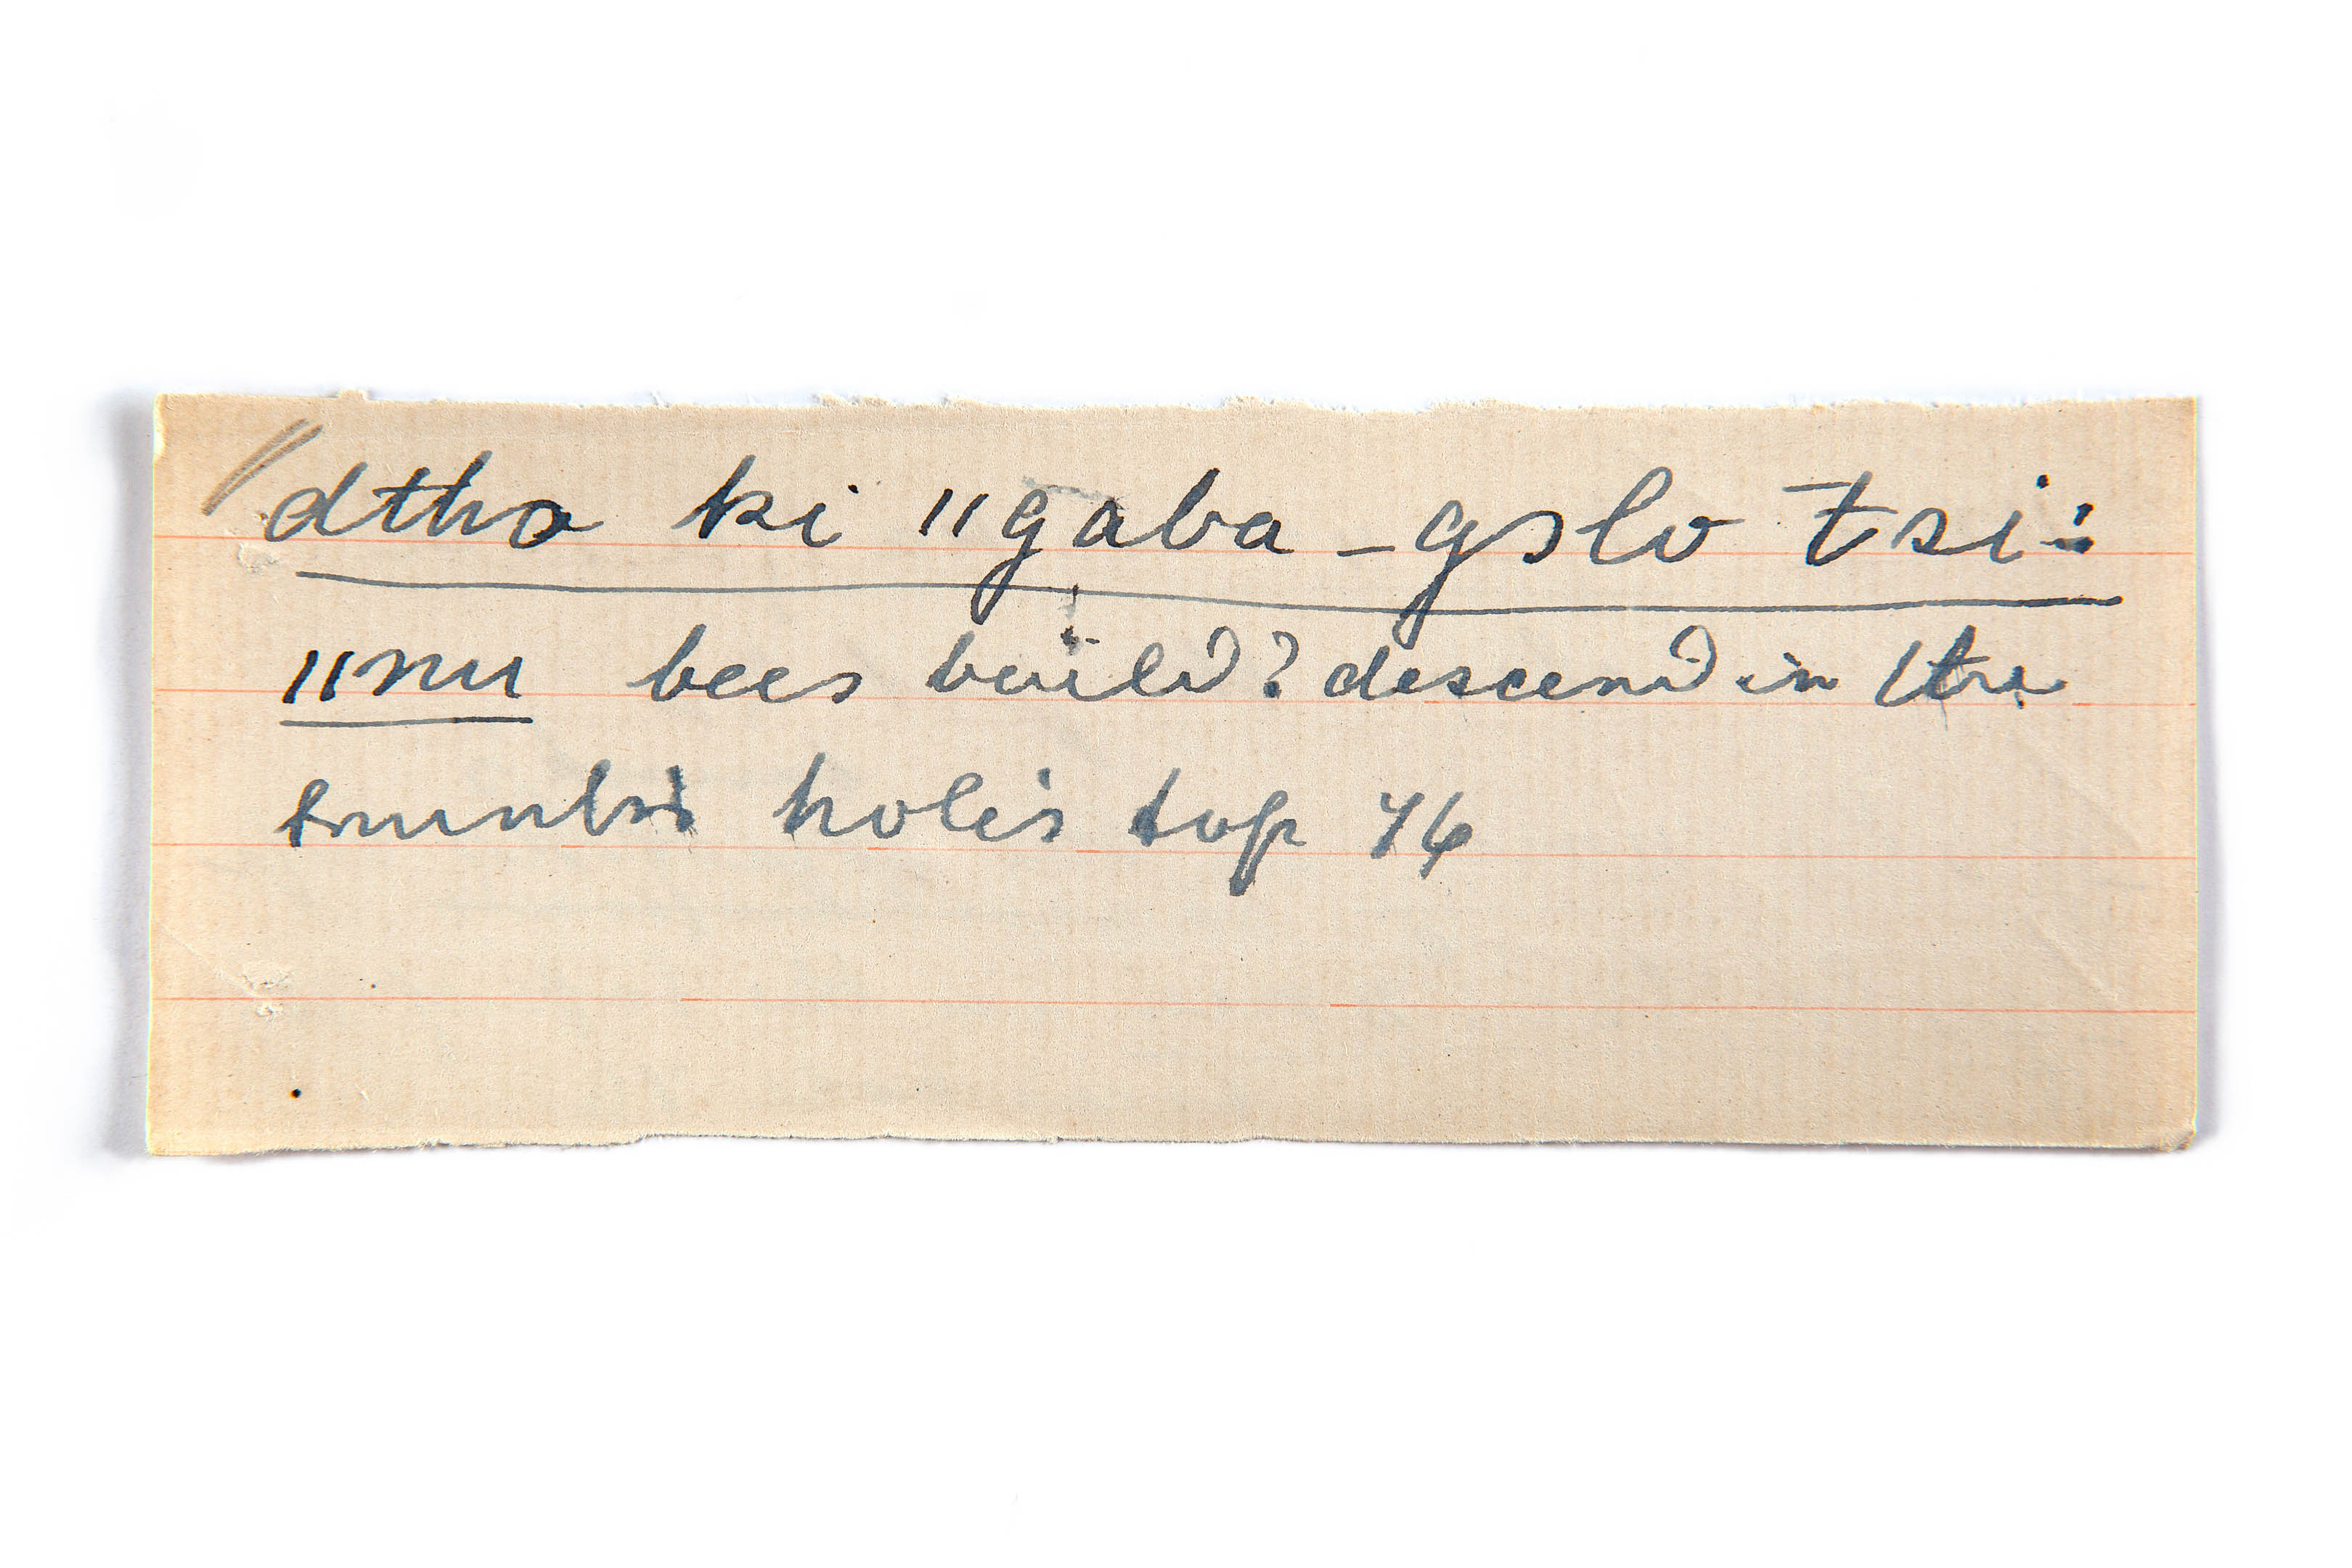 dtho ki ||gaba - gslo tsi:
||nu bees build? descend in the
trunks hole's top 46